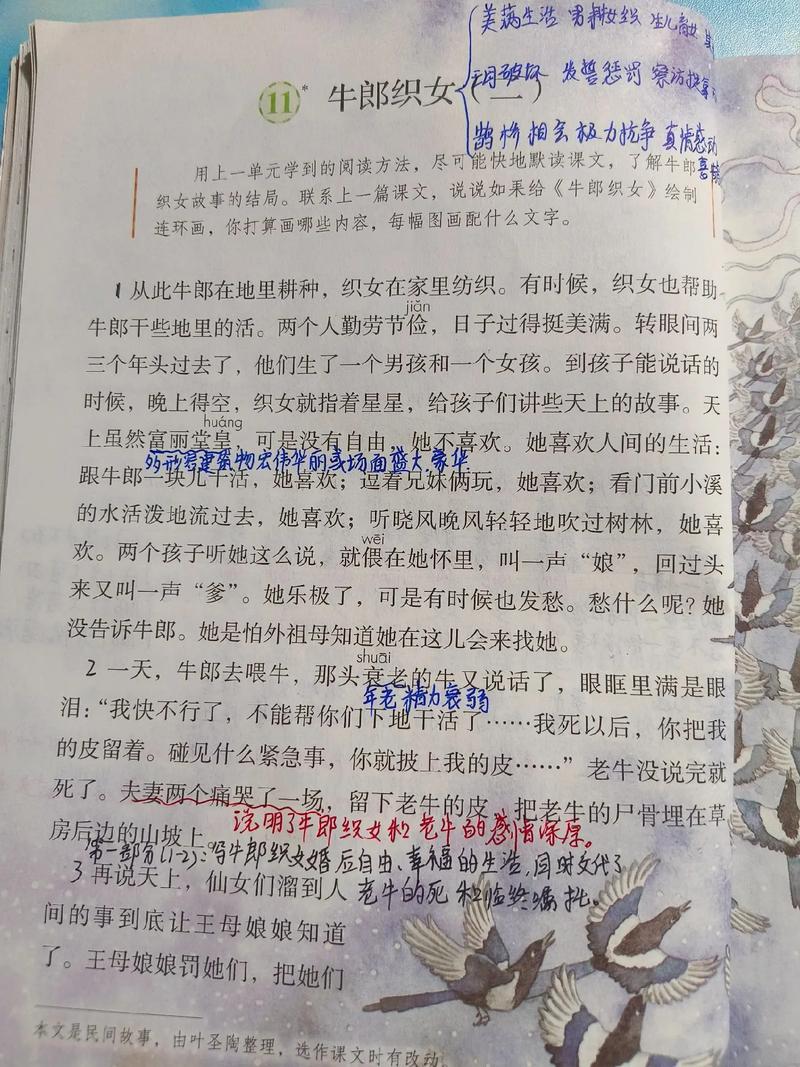 美满生活 男耕女织 生儿育女
王母破坏 发誓惩罚 察访捉拿
鹊桥相会 极力抗争 真情感动
喜鹊
11* 牛郎织女（二）
用上一单元学到的阅读方法，尽可能快地默读课文，了解牛郎
织女故事的结局。联系上一篇课文，说说如果给《牛郎织女》绘制
连环画，你打算画哪些内容，每幅图画配什么文字。
1 从此牛郎在地里耕种，织女在家里纺织。有时候，织女也帮助
jiǎn
牛郎干些地里的活。两个人勤劳节俭，日子过得挺美满。转眼间两
三个年头过去了，他们生了一个男孩和一个女孩。到孩子能说话的
时候，晚上得空，织女就指着星星，给孩子们讲些天上的故事。天
huáng
上虽然富丽堂皇，可是没有自由，她不喜欢。她喜欢人间的生活：
形容建筑物宏伟华丽或场面盛大、豪华
跟牛郎一块儿干活，她喜欢；逗着兄妹俩玩，她喜欢；看门前小溪
的水活泼地流过去，她喜欢；听晓风晚风轻轻地吹过树林，她喜
wēi
欢。两个孩子听她这么说，就偎在她怀里，叫一声“娘”，回过头
来又叫一声“爹”。她乐极了，可是有时候也发愁。愁什么呢？她
没告诉牛郎。她是怕外祖母知道她在这儿会来找她。
shuāi
2 一天，牛郎去喂牛，那头衰老的牛又说话了，眼眶里满是眼
年老精力衰弱
泪：“我快不行了，不能帮你们下地干活了……我死以后，你把我
的皮留着。碰见什么紧急事，你就披上我的皮……” 老牛没说完就
死了。夫妻两个痛哭了一场，留下老牛的皮，把老牛的尸骨埋在草
房后边的山坡上。
说明了牛郎织女和老牛的感情深厚。
第一部分(1-2)：写牛郎织女婚后自由、幸福的生活，同时交代了
老牛的死和临终嘱托。
3 再说天上，仙女们溜到人
间的事到底让王母娘娘知道
了。王母娘娘罚她们，把她们
本文是民间故事，由叶圣陶整理，选作课文时有改动。